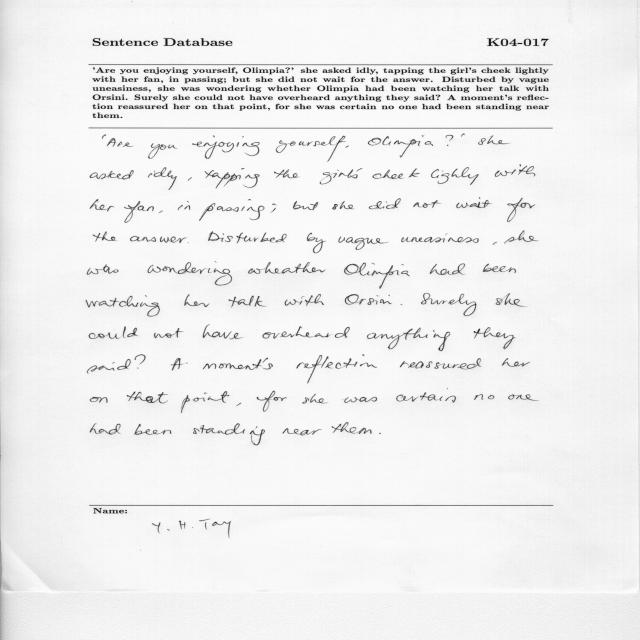 Sentence Database K04-017
'Are you enjoying yourself, Olimpia?' she asked idly, tapping the girl's cheek lightly
with her fan, in passing; but she did not wait for the answer. Disturbed by vague
uneasiness, she was wondering whether Olimpia had been watching her talk with
Orsini. Surely she could not have overheard anything they said? A moment's reflec-
tion reassured her on that point, for she was certain no one had been standing near
them.
'Are you enjoying yourself, Olimpia?' she
asked idly, tapping the girl's cheek lighly with
her fan, in passing; but she did not wait for
the answer. Disturbed by vague uneasiness, she
was wondering wheather Olimpia had been
watching her talk with Orsini. Surely she
could not have overheard anything they
said? A moment's reflection reassured her
on that point, for she was certain no one
had been standing near them.
Name:
Y. H. Tay